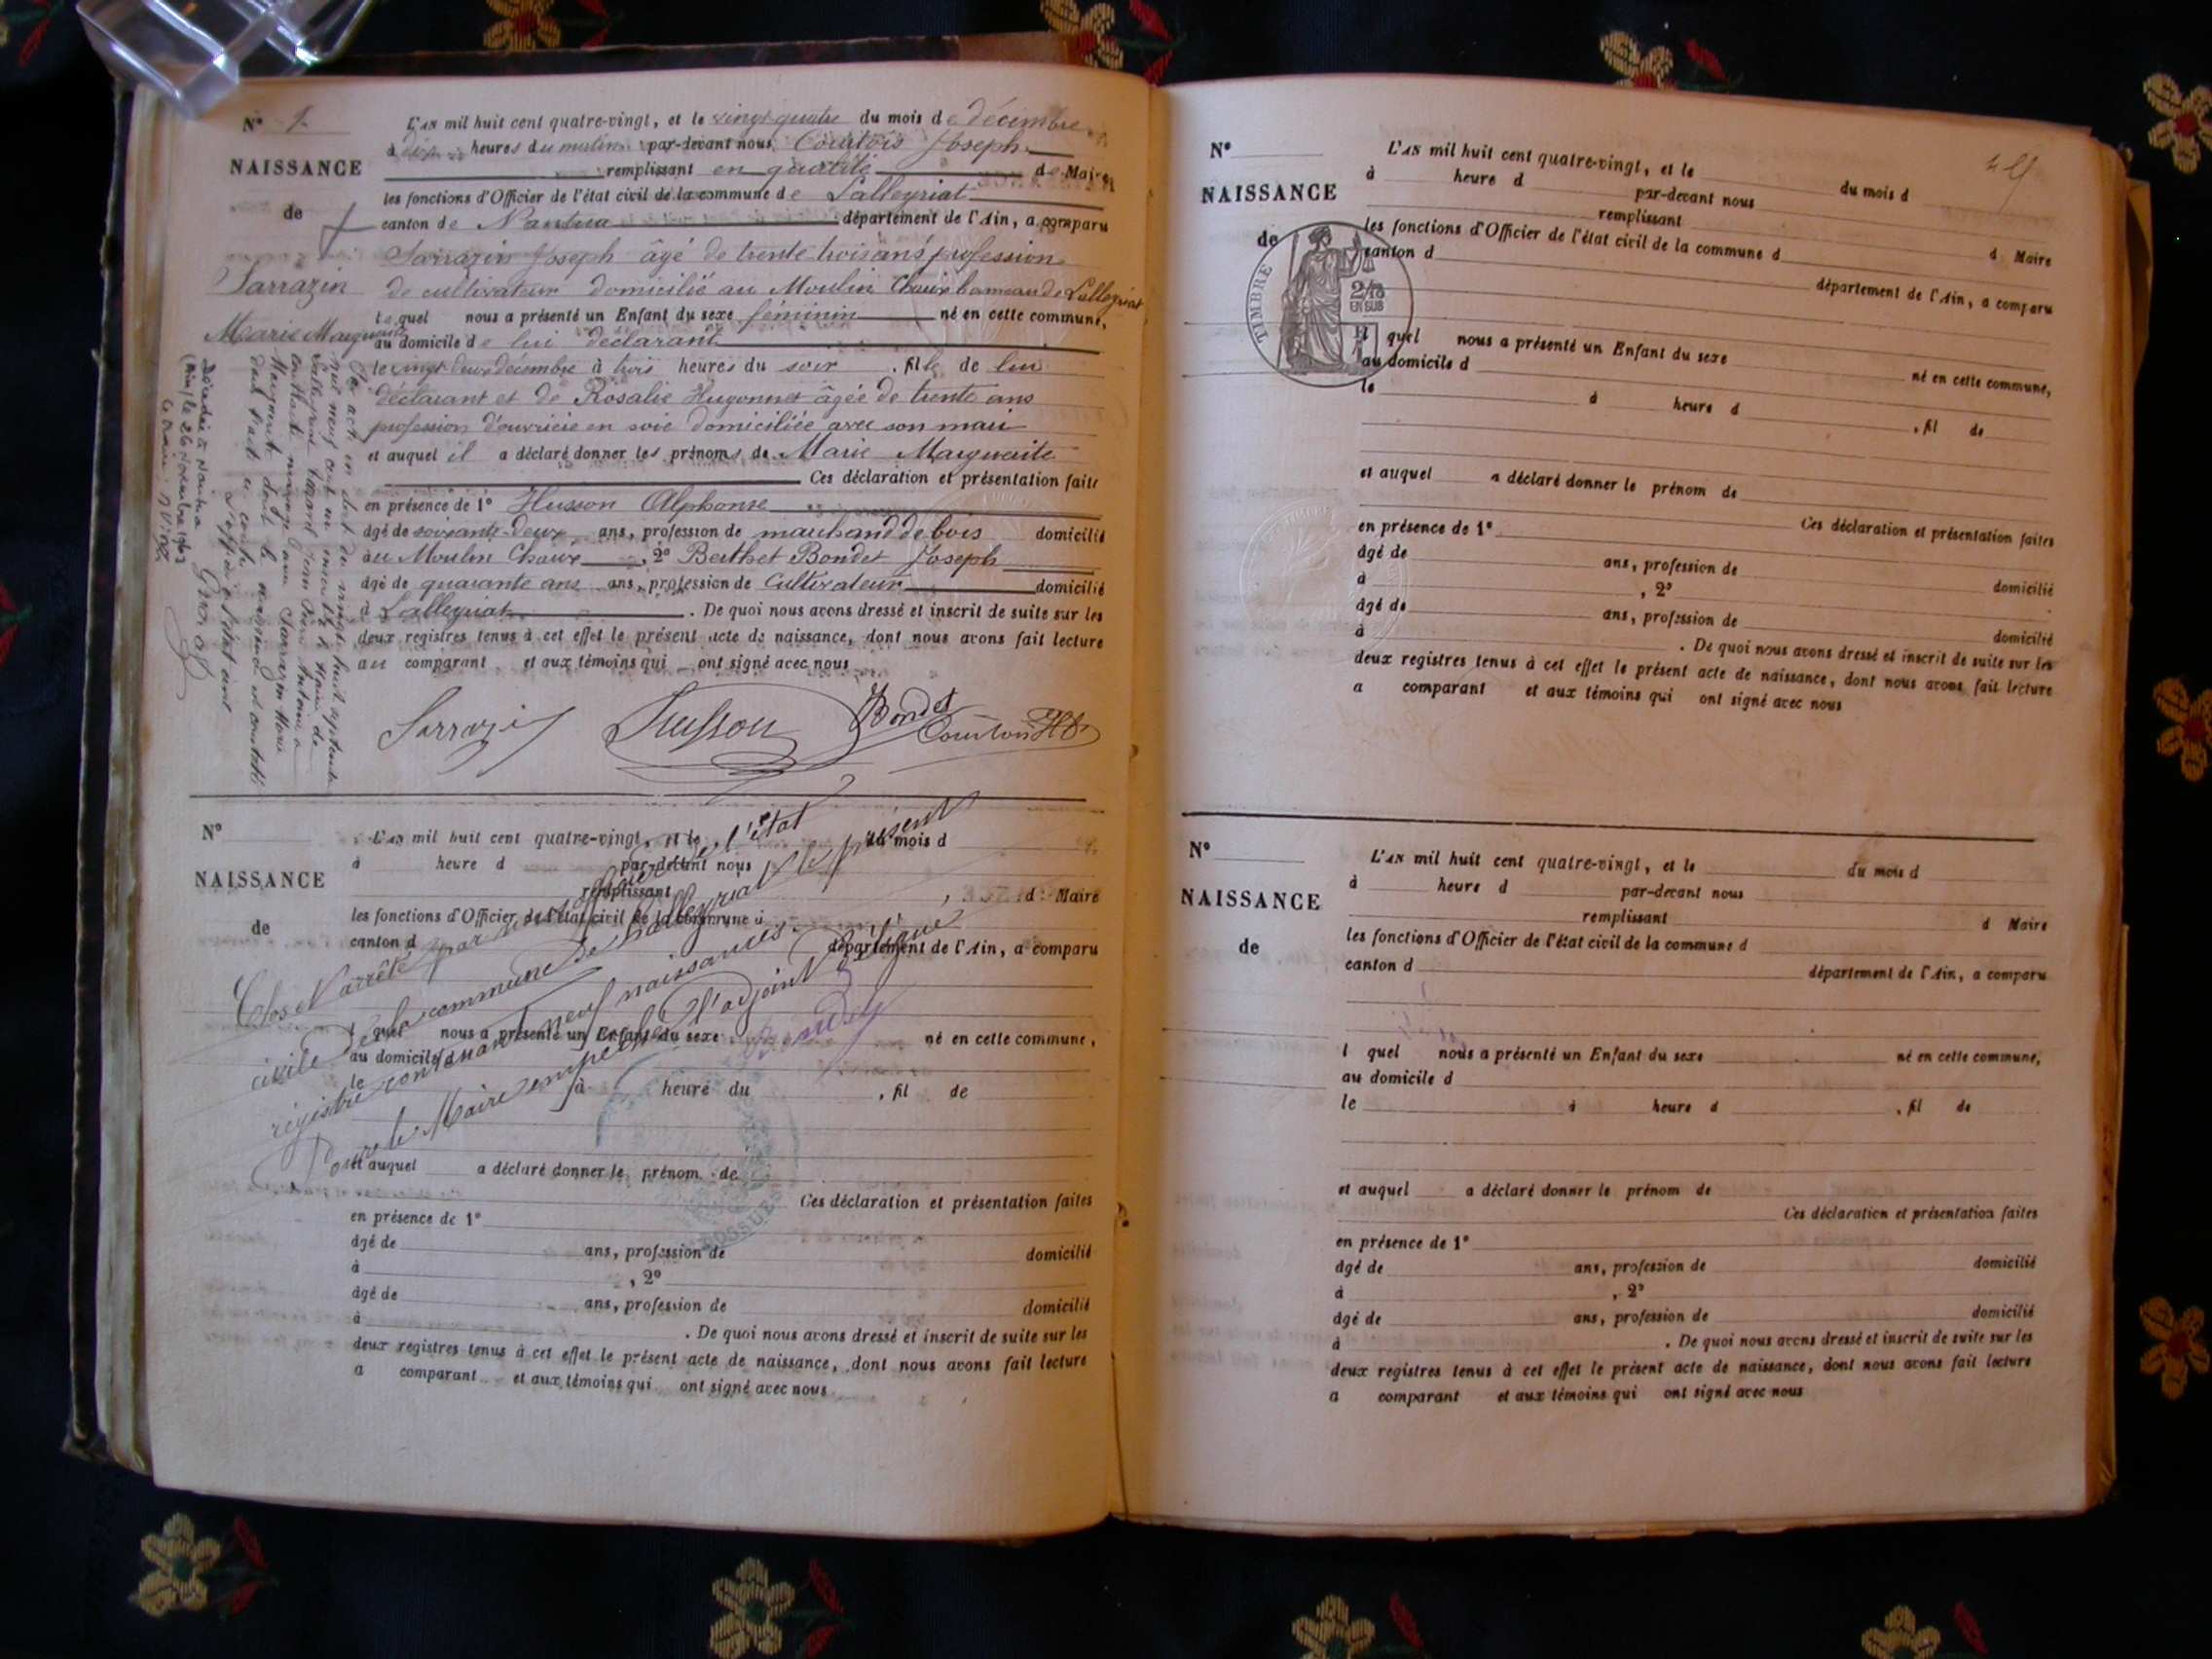 N° 9
NAISSANCE
de
Sarrazin
Marie Marguerite
L'AN mil huit cent quatre-vingt, et le vingt quatre du mois de décembre
à dix heures du matin par-devant nous Courtois Joseph
remplissant en qualité de Maire
les fonctions d'Officier de l'état civil de la commune de Lalleyriat
canton de Nantua département de l'Ain, a comparu
Sarrazin Joseph âgé de trente trois ans profession
de cultivateur domicilié au Moulin Chaux hameau de Lalleyriat
lequel nous a présenté un Enfant du sexe féminin né en cette commune,
au domicile de lui déclarant
le vingt deux décembre à trois heures du soir, fille de lui
déclarant et de Rosalie Hugonnet âgée de trente ans
profession d'ouvrière en soie domiciliée avec son mari
et auquel il a déclaré donner les prénoms de Marie Marguerite
Ces déclaration et présentation faites
en présence de 1° Husson Alphonse
âgé de soixante-deux ans, profession de marchand de bois domicilié
au Moulin Chaux, 2° Berthet Bondet Joseph
âgé de quarante ans ans, profession de Cultivateur domicilié
à Lalleyriat. De quoi nous avons dressé et inscrit de suite sur les
deux registres tenus à cet effet le présent acte de naissance, dont nous avons fait lecture
au comparant et aux témoins qui ont signé avec nous
Par acte en date du vingt huit septembre
mil neuf cent un inscrit à la Mairie de
Lalleyriat Jean Antoine a
contracté mariage avec Sarrazin Marie
Marguerite dont la naissance est constatée
dont l'acte ci contre
L'officier de l'état civil
Décédée à Nantua
(Ain) le 26 Novembre 1963
Le Maire
Sarrazin Husson Bondet Courtois
N°
NAISSANCE
de
L'AN mil huit cent quatre-vingt, et le du mois d
à heure d par-devant nous
remplissant d Maire
les fonctions d'Officier de l'état civil de la commune d
canton d département de l'Ain, a comparu
l quel nous a présenté un Enfant du sexe né en cette commune,
au domicile d
le à heure du , fil de
et auquel a déclaré donner le prénom de
Ces déclaration et présentation faites
en présence de 1°
âgé de ans, profession de domicilié
à , 2°
âgé de ans, profession de domicilié
à . De quoi nous avons dressé et inscrit de suite sur les
deux registres tenus à cet effet le présent acte de naissance, dont nous avons fait lecture
a comparant et aux témoins qui ont signé avec nous
Clos et arrêté par nous officier de l'état
civile de la commune de Lalleyriat le présent
régistre contenant neuf naissances
Pour le Maire empêché l'adjoint délégué
N°
NAISSANCE
de
TIMBRE
2/10
EN SUS
L'AN mil huit cent quatre-vingt, et le du mois d
à heure d par-devant nous
remplissant d Maire
les fonctions d'Officier de l'état civil de la commune d
canton d département de l'Ain, a comparu
l quel nous a présenté un Enfant du sexe né en cette commune,
au domicile d
le à heure d , fil de
et auquel a déclaré donner le prénom de
Ces déclaration et présentation faites
en présence de 1°
âgé de ans, profession de domicilié
à , 2°
âgé de ans, profession de domicilié
à . De quoi nous avons dressé et inscrit de suite sur les
deux registres tenus à cet effet le présent acte de naissance, dont nous avons fait lecture
a comparant et aux témoins qui ont signé avec nous
N°
NAISSANCE
de
L'AN mil huit cent quatre-vingt, et le du mois d
à heure d par-devant nous
remplissant d Maire
les fonctions d'Officier de l'état civil de la commune d
canton d département de l'Ain, a comparu
l quel nous a présenté un Enfant du sexe né en cette commune,
au domicile d
le à heure d , fil de
et auquel a déclaré donner le prénom de
Ces déclaration et présentation faites
en présence de 1°
âgé de ans, profession de domicilié
à , 2°
âgé de ans, profession de domicilié
à . De quoi nous avons dressé et inscrit de suite sur les
deux registres tenus à cet effet le présent acte de naissance, dont nous avons fait lecture
a comparant et aux témoins qui ont signé avec nous